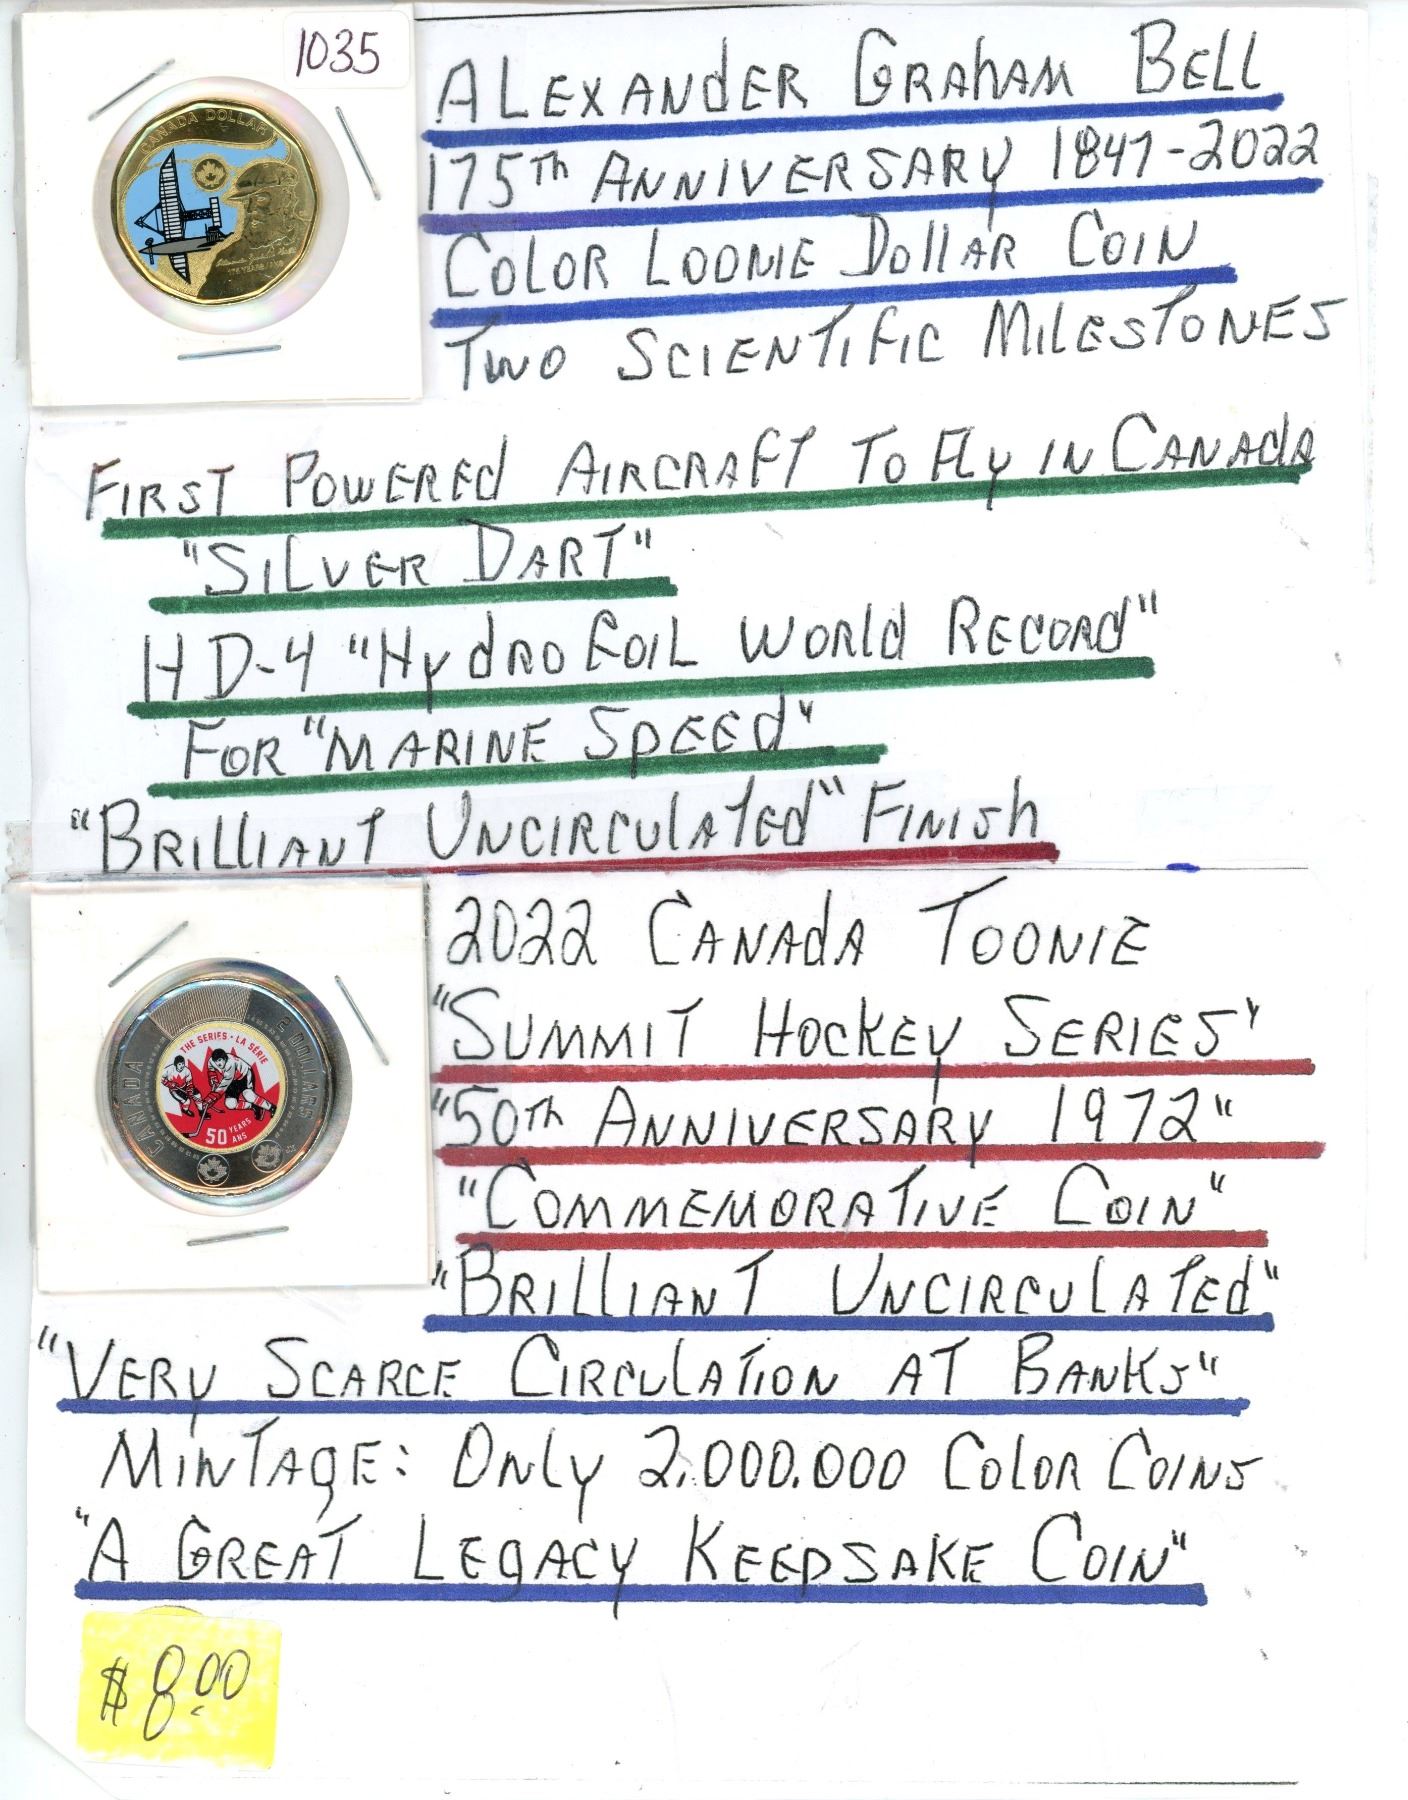 1035
CANADA DOLLAR
175 YEARS / ANS
ALEXANDER GRAHAM BELL
175th ANNIVERSARY 1847-2022
COLOR LOONIE DOLLAR COIN
TWO SCIENTIFIC MILESTONES
FIRST POWERED AIRCRAFT TO FLY IN CANADA
"SILVER DART"
HD-4 "HYDROFOIL WORLD RECORD"
FOR "MARINE SPEED"
"BRILLIANT UNCIRCULATED" FINISH
CANADA
2 DOLLARS
THE SERIES • LA SÉRIE
50 YEARS
ANS
2022 CANADA TOONIE
"SUMMIT HOCKEY SERIES"
"50th ANNIVERSARY 1972"
"COMMEMORATIVE COIN"
"BRILLIANT UNCIRCULATED"
"VERY SCARCE CIRCULATION AT BANKS"
MINTAGE: ONLY 2,000.000 COLOR COINS
"A GREAT LEGACY KEEPSAKE COIN"
$8.00